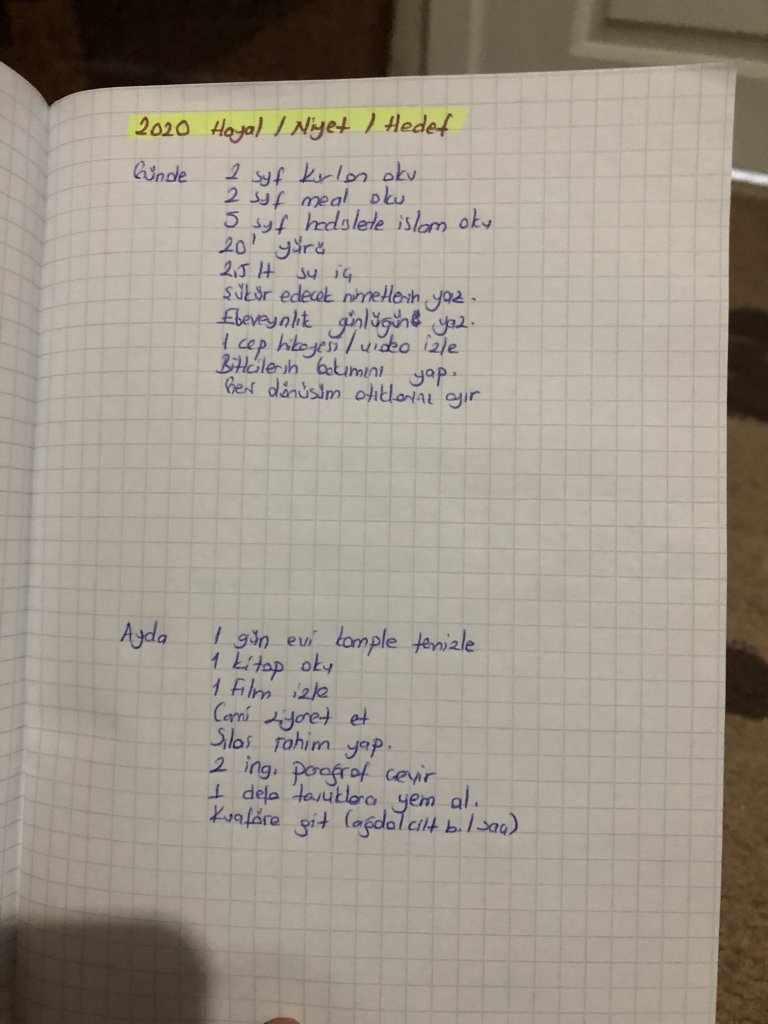 2020 Hayal / Niyet / Hedef
Günde 2 syf Kur'an oku
2 syf meal oku
5 syf hadislerle islam oku
20' yürü
2,5 lt su iç
Şükür edecek nimetlerin yaz.
Ebeveynlik günlüğünü yaz.
1 cep hikayesi / video izle
Bitkilerin bakımını yap.
Geri dönüşüm atıklarını ayır
Ayda 1 gün evi komple temizle
1 kitap oku
1 film izle
Cami ziyaret et
Sılai rahim yap.
2 ing. paragraf çevir
1 defa tavuklara yem al.
Kuaföre git (ağda / cilt b. / saç)